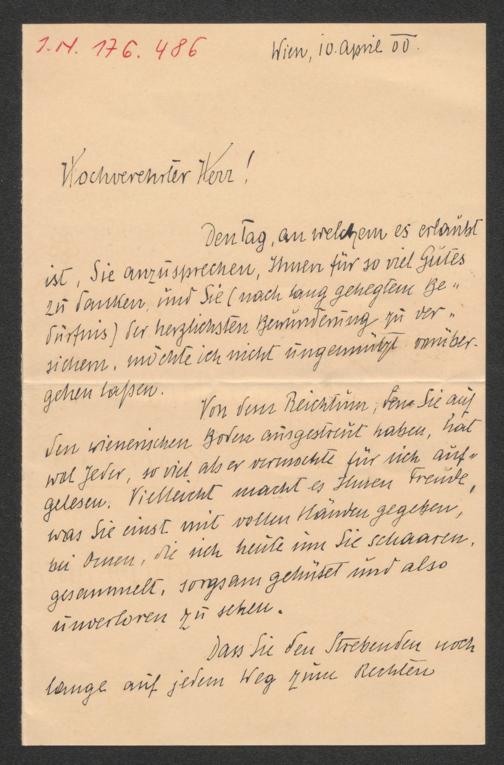 I.N. 176.486
Wien, 10. April 00.
Hochverehrter Herr!
Den Tag, an welchem es erlaubt
ist, Sie anzusprechen, Ihnen für so viel Gutes
zu danken, und Sie (nach lang gehegtem Be„
dürfnis) der herzlichsten Bewunderung zu ver„
sichern, möchte ich nicht ungenützt vorüber-
gehen laßen.
Von dem Reichtum, den Sie auf
den wienerischen Boden ausgestreut haben, hat
wol Jeder, so viel als er vermochte für sich auf„
gelesen. Vielleicht macht es Ihnen Freude,
was Sie einst mit vollen Händen gegeben,
bei Denen, die sich heute um Sie schaaren,
gesammelt, sorgsam gehütet und also
unverloren zu sehen.
Dass Sie den Strebenden noch
lange auf jedem Weg zum Rechten